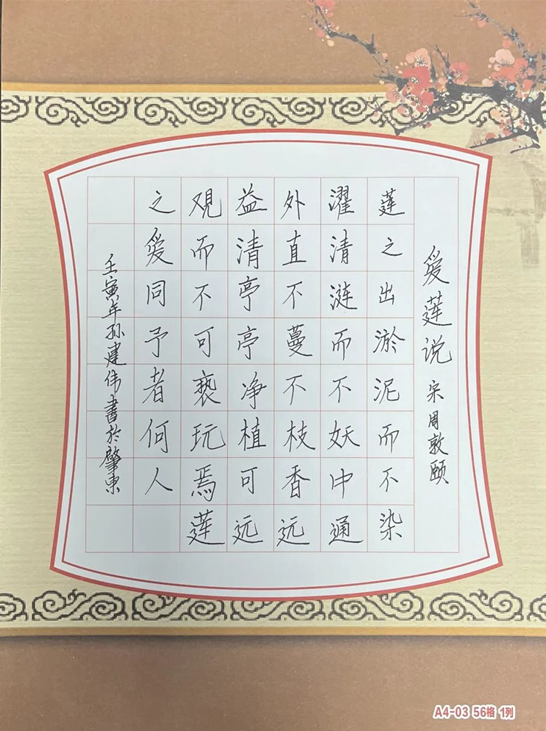 爱莲说 宋 周敦颐
莲之出淤泥而不染
濯清涟而不妖中通
外直不蔓不枝香远
益清亭亭净植可远
观而不可亵玩焉莲
之爱同予者何人
壬寅年孙建伟書於肇东
A4-03 56格 1列